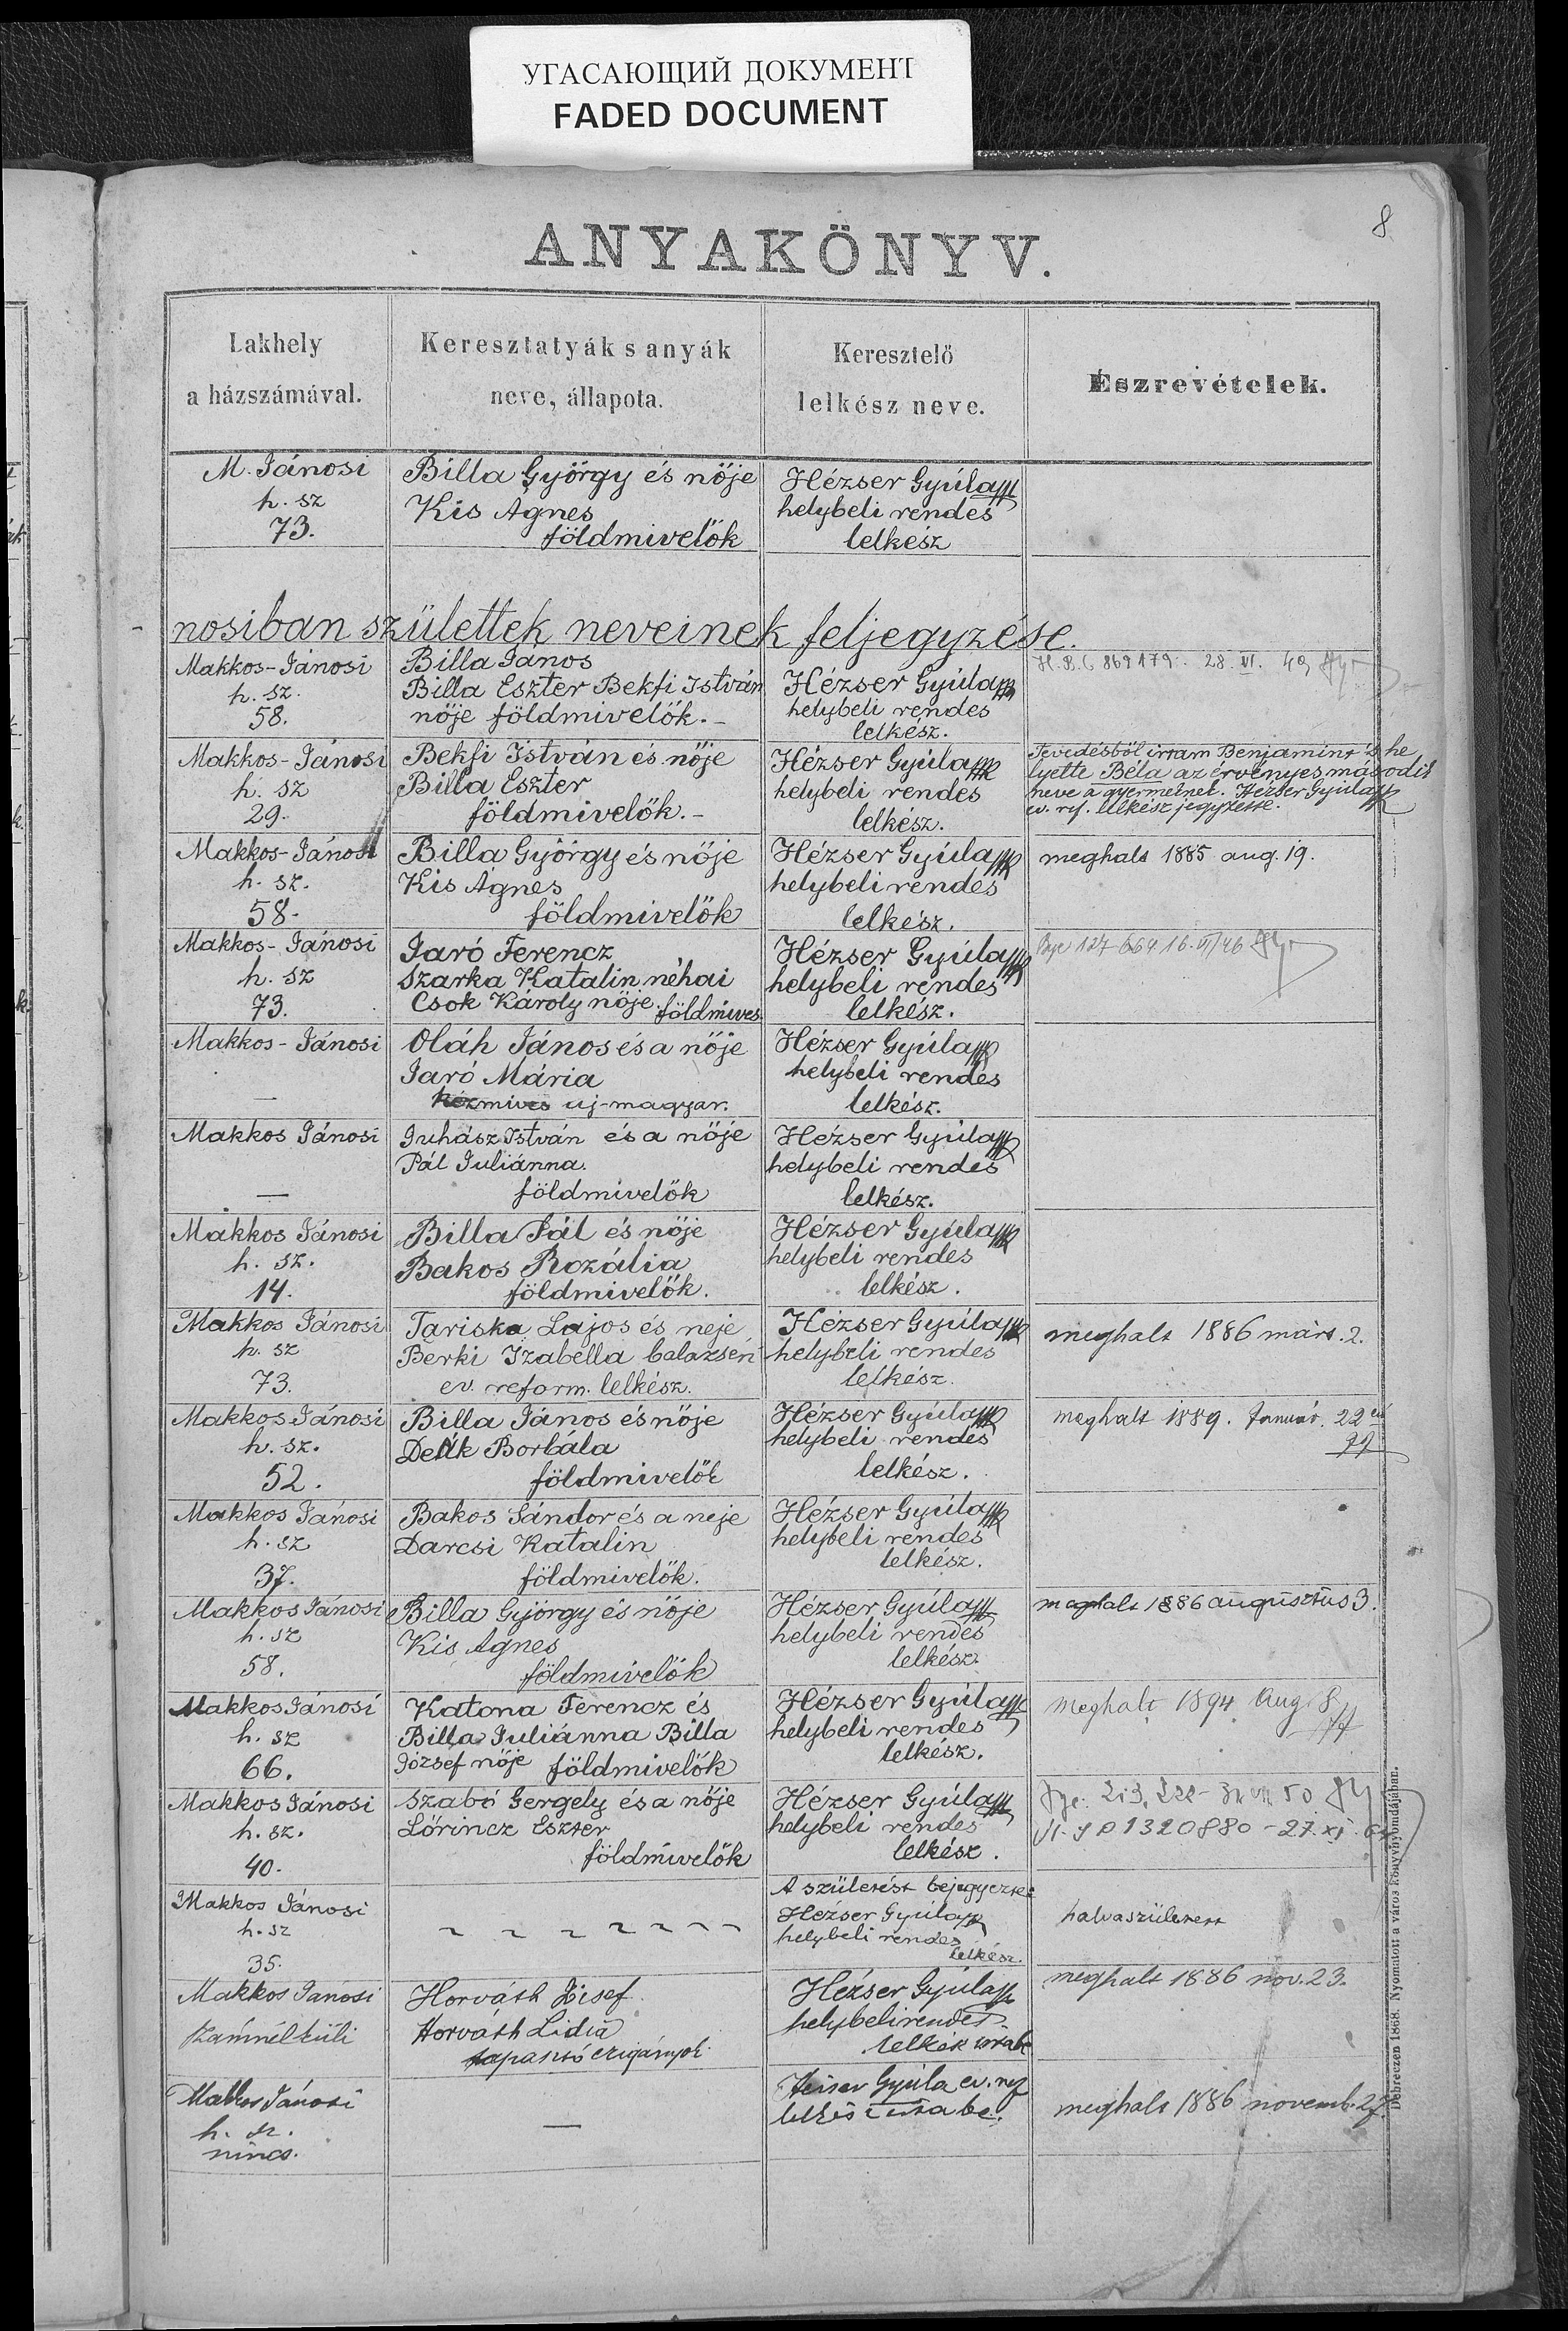 УГАСАЮЩИЙ ДОКУМЕНТ
FADED DOCUMENT
8
ANYAKÖNYV.
Lakhely
a házszámával.
Keresztatyák s anyák
neve, állapota.
Keresztelő
lelkész neve.
Észrevételek.
M. Jánosi
h. sz
73.
Billa György és nője
Kis Ágnes
földmivelők
Hézser Gyúla
helybeli rendes
lelkész
nosiban születtek neveinek feljegyzése.
Makkos-Jánosi
h. sz.
58.
Billa János
Billa Eszter Bekfi István
nője földmivelők.-
Hézser Gyúla
helybeli rendes
lelkész.
869179. 28. VI. 49
Makkos-Jánosi
h. sz
29.
Bekfi István és nője
Billa Eszter
földmivelők.-
Hézser Gyúla
helybeli rendes
lelkész.
Tevedésből irtam Benjamint is he
lyette Béla az érvényes második
neve a gyermeknek. Hézser Gyúla
ev. ref. lelkész jegyzette.
Makkos-Jánosi
h. sz.
58.
Billa György és nője
Kis Ágnes
földmivelők
Hézser Gyúla
helybeli rendes
lelkész.
meghalt 1885 aug. 19.
Makkos-Jánosi
h. sz
73.
Jaró Ferencz
Szarka Katalin néhai
Csok Károly nője földmives
Hézser Gyúla
helybeli rendes
lelkész.
16. VI/46
Makkos-Jánosi
—
Oláh János és a nője
Jaró Mária
uj-magyar.
Hézser Gyúla
helybeli rendes
lelkész.
Makkos Jánosi
—
Juhász István és a nője
Pál Juliánna.
földmivelők
Hézser Gyúla
helybeli rendes
lelkész.
Makkos Jánosi
h. sz.
14.
Billa Pál és nője
Bakos Rozália
földmivelők.
Hézser Gyúla
helybeli rendes
lelkész.
Makkos Jánosi
h. sz
73.
Tariska Lajos és neje
Berki Izabella
ev. reform. lelkész.
Hézser Gyúla
helybeli rendes
lelkész.
meghalt 1886 márs. 2.
Makkos Jánosi
h. sz.
52.
Billa János és nője
Deák Borbála
földmivelők
Hézser Gyúla
helybeli rendes
lelkész.
meghalt 1889. Január. 22
Makkos Jánosi
h. sz
37.
Bakos Sándor és a neje
Darcsi Katalin
földmivelők.
Hézser Gyúla
helybeli rendes
lelkész.
Makkos Jánosi
h. sz
58.
Billa György és nője
Kis Ágnes
földmivelők
Hézser Gyúla
helybeli rendes
lelkész.
meghalt 1886 augusztus 3.
Makkos Jánosi
h. sz
66.
Katona Ferencz és
Billa Juliánna Billa
József nője földmivelők
Hézser Gyúla
helybeli rendes
lelkész.
meghalt 1894 Aug. 8
Makkos Jánosi
h. sz.
40.
Szabó Gergely és a nője
Lőrincz Eszter
földmivelők
Hézser Gyúla
helybeli rendes
lelkész.
1320880 - 27. XI.
Makkos Jánosi
h. sz
35.
A születést bejegyezte
Hézser Gyúla
helybeli rendes
lelkész.
halvaszületett
Makkos Jánosi
számnélküli
Horváth József
Horváth Lidia
tapasztó czigányok
Hézser Gyúla
helybeli rendes
meghalt 1886 nov. 23.
Makkos Jánosi
h. sz.
nincs.
—
Hézser Gyúla ev. ref
lelkész irta be.
meghalt 1886 novemb. 27.
Debreczen 1868. Nyomatott a város könyvnyomdájában.